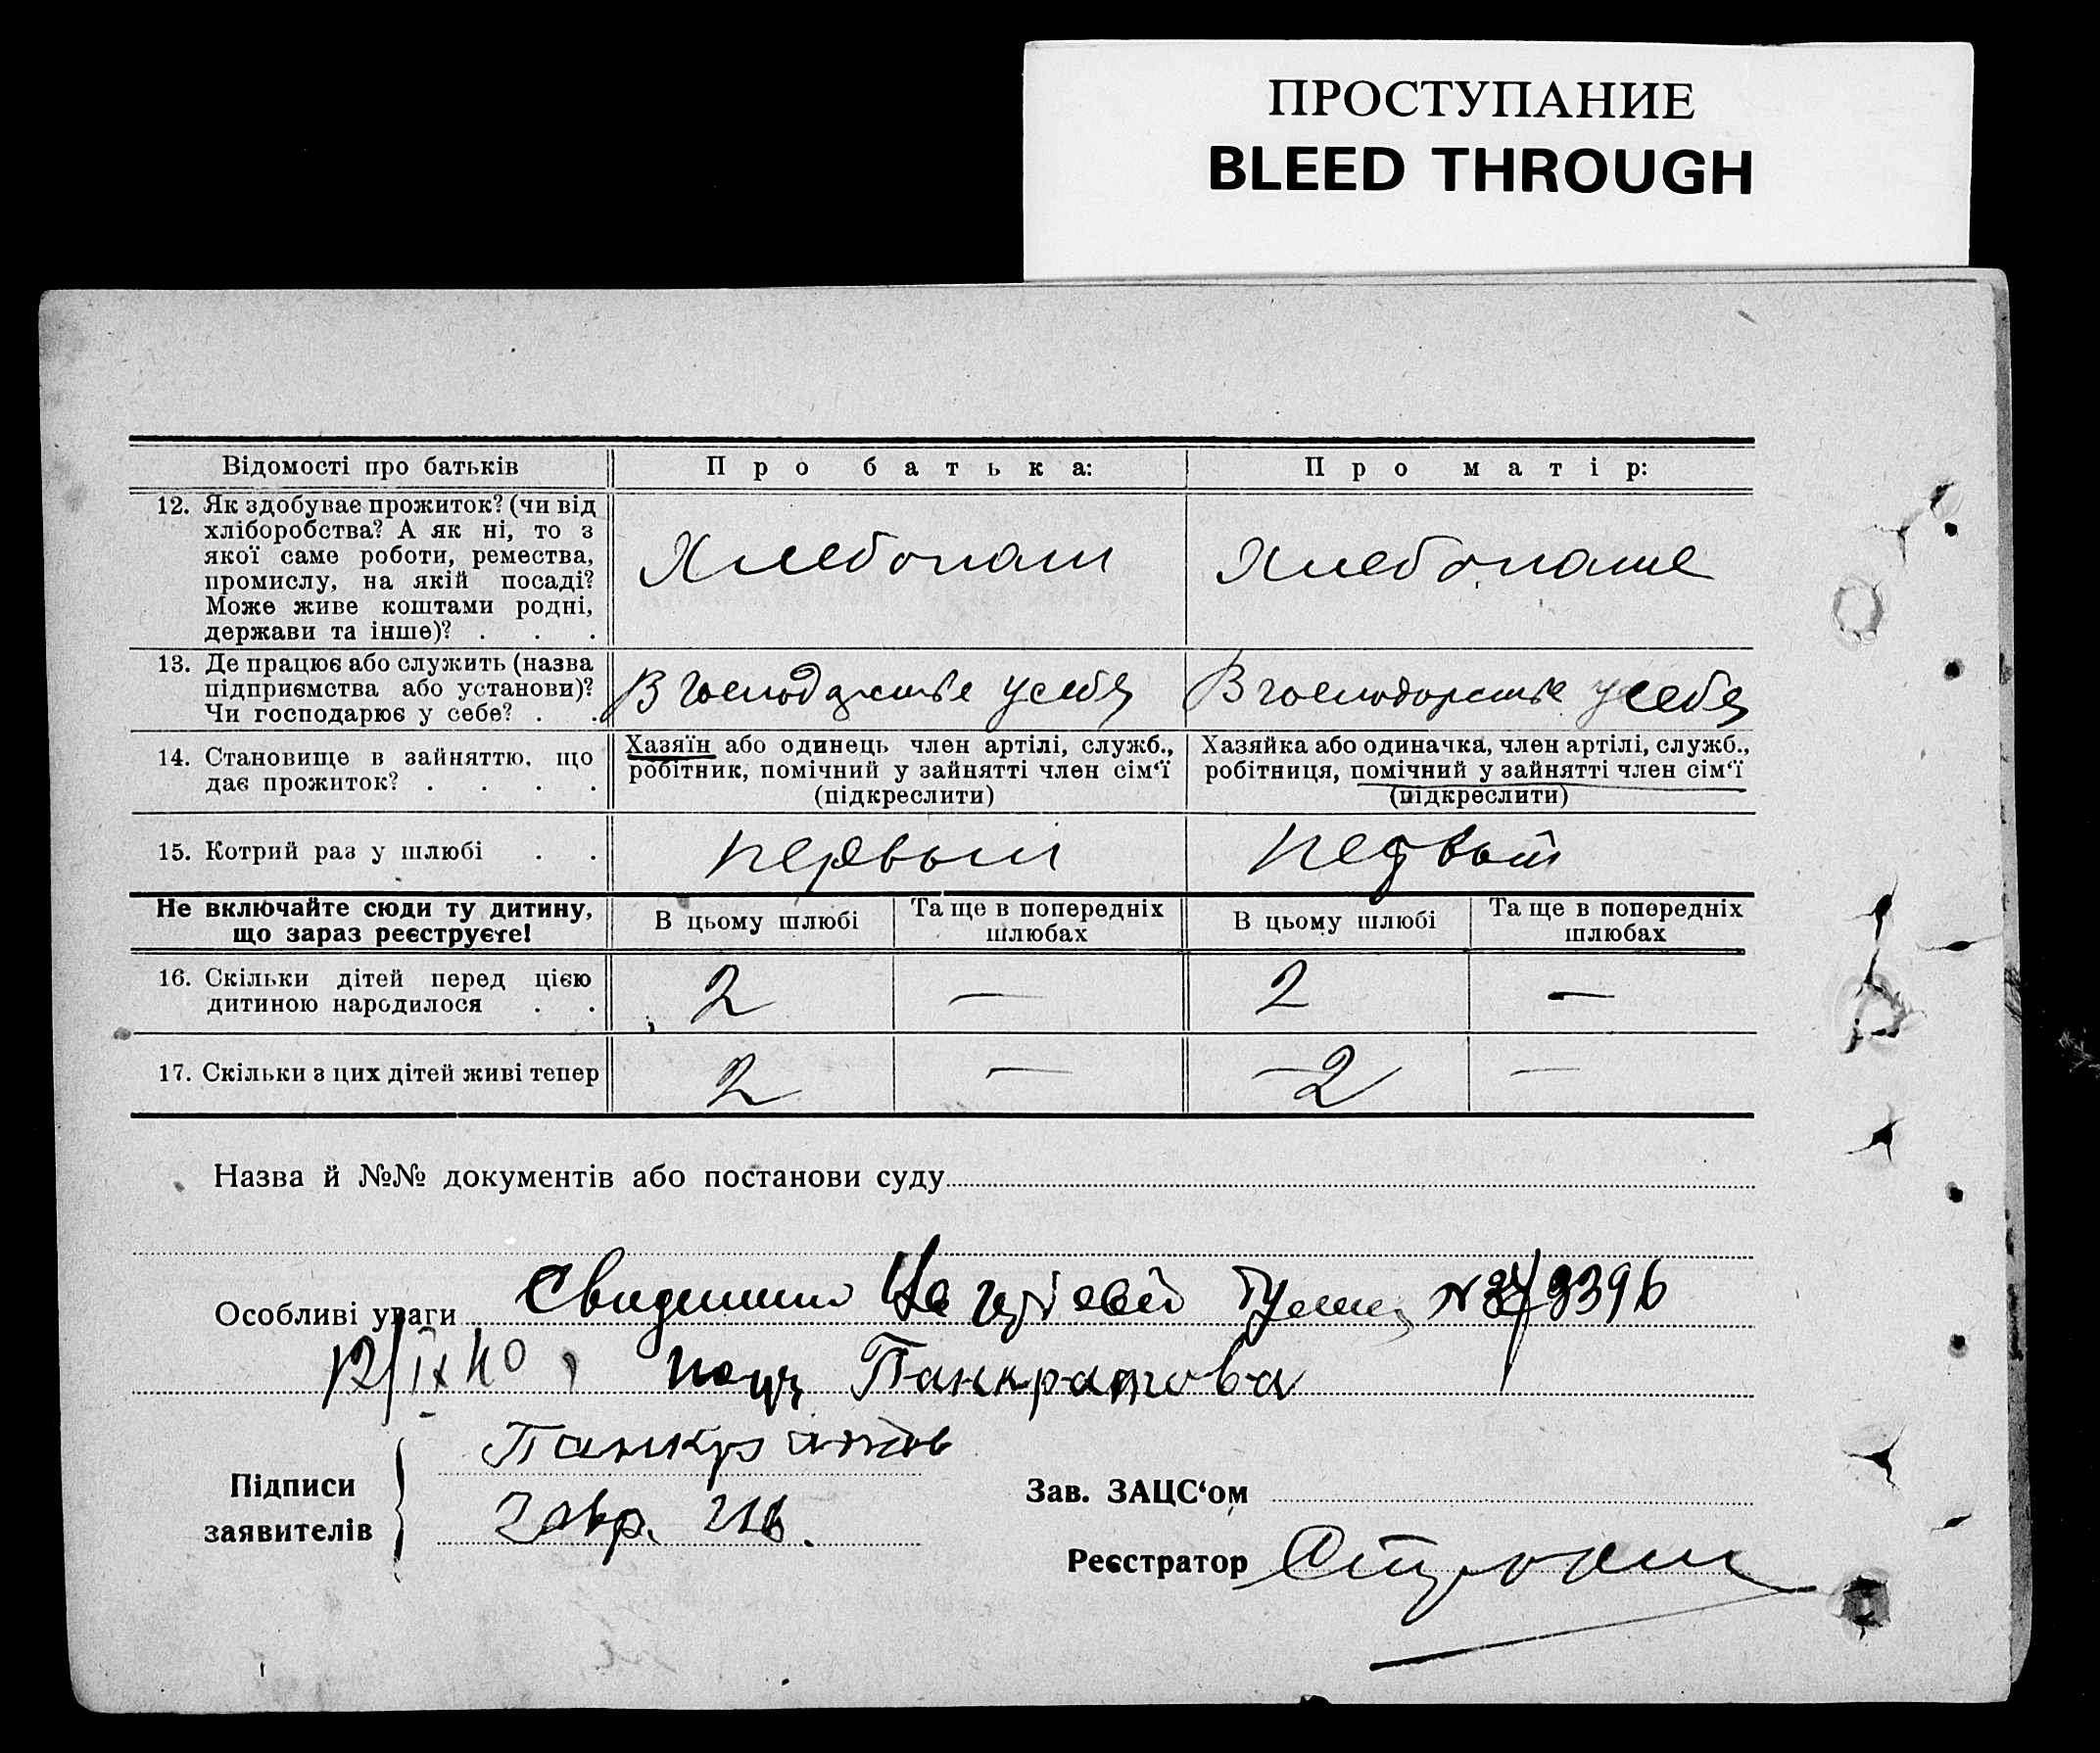 ПРОСТУПАНИЕ
BLEED THROUGH
Відомості про батьків
Про батька:
Про матір:
12. Як здобуває прожиток? (чи від
хліборобства? А як ні, то з
якої саме роботи, ремества,
промислу, на якій посаді?
Може живе коштами родні,
держави та інше)? . . .
Хлебопаш
Хлебопаше
13. Де працює або служить (назва
підприємства або установи)?
Чи господарює у себе? . .
В господарстве у себя
В господарстве у себя
14. Становище в зайняттю, що
дає прожиток? . . . .
Хазяїн або одинець член артілі, служб.,
робітник, помічний у зайнятті член сім‘ї
(підкреслити)
Хазяйка або одиначка, член артілі, служб.,
робітниця, помічний у зайнятті член сім‘ї
(підкреслити)
15. Котрий раз у шлюбі . .
первый
первый
Не включайте сюди ту дитину,
що зараз реєструєте!
В цьому шлюбі
Та ще в попередніх
шлюбах
В цьому шлюбі
Та ще в попередніх
шлюбах
16. Скільки дітей перед цією
дитиною народилося . .
2
—
2
—
17. Скільки з цих дітей живі тепер
2
—
2
—
Назва й №№ документів або постанови суду
Особливі уваги
12/IX 40 Панкратова
Підписи
заявителів
Панкратов
Зав. ЗАЦС‘ом
Реєстратор